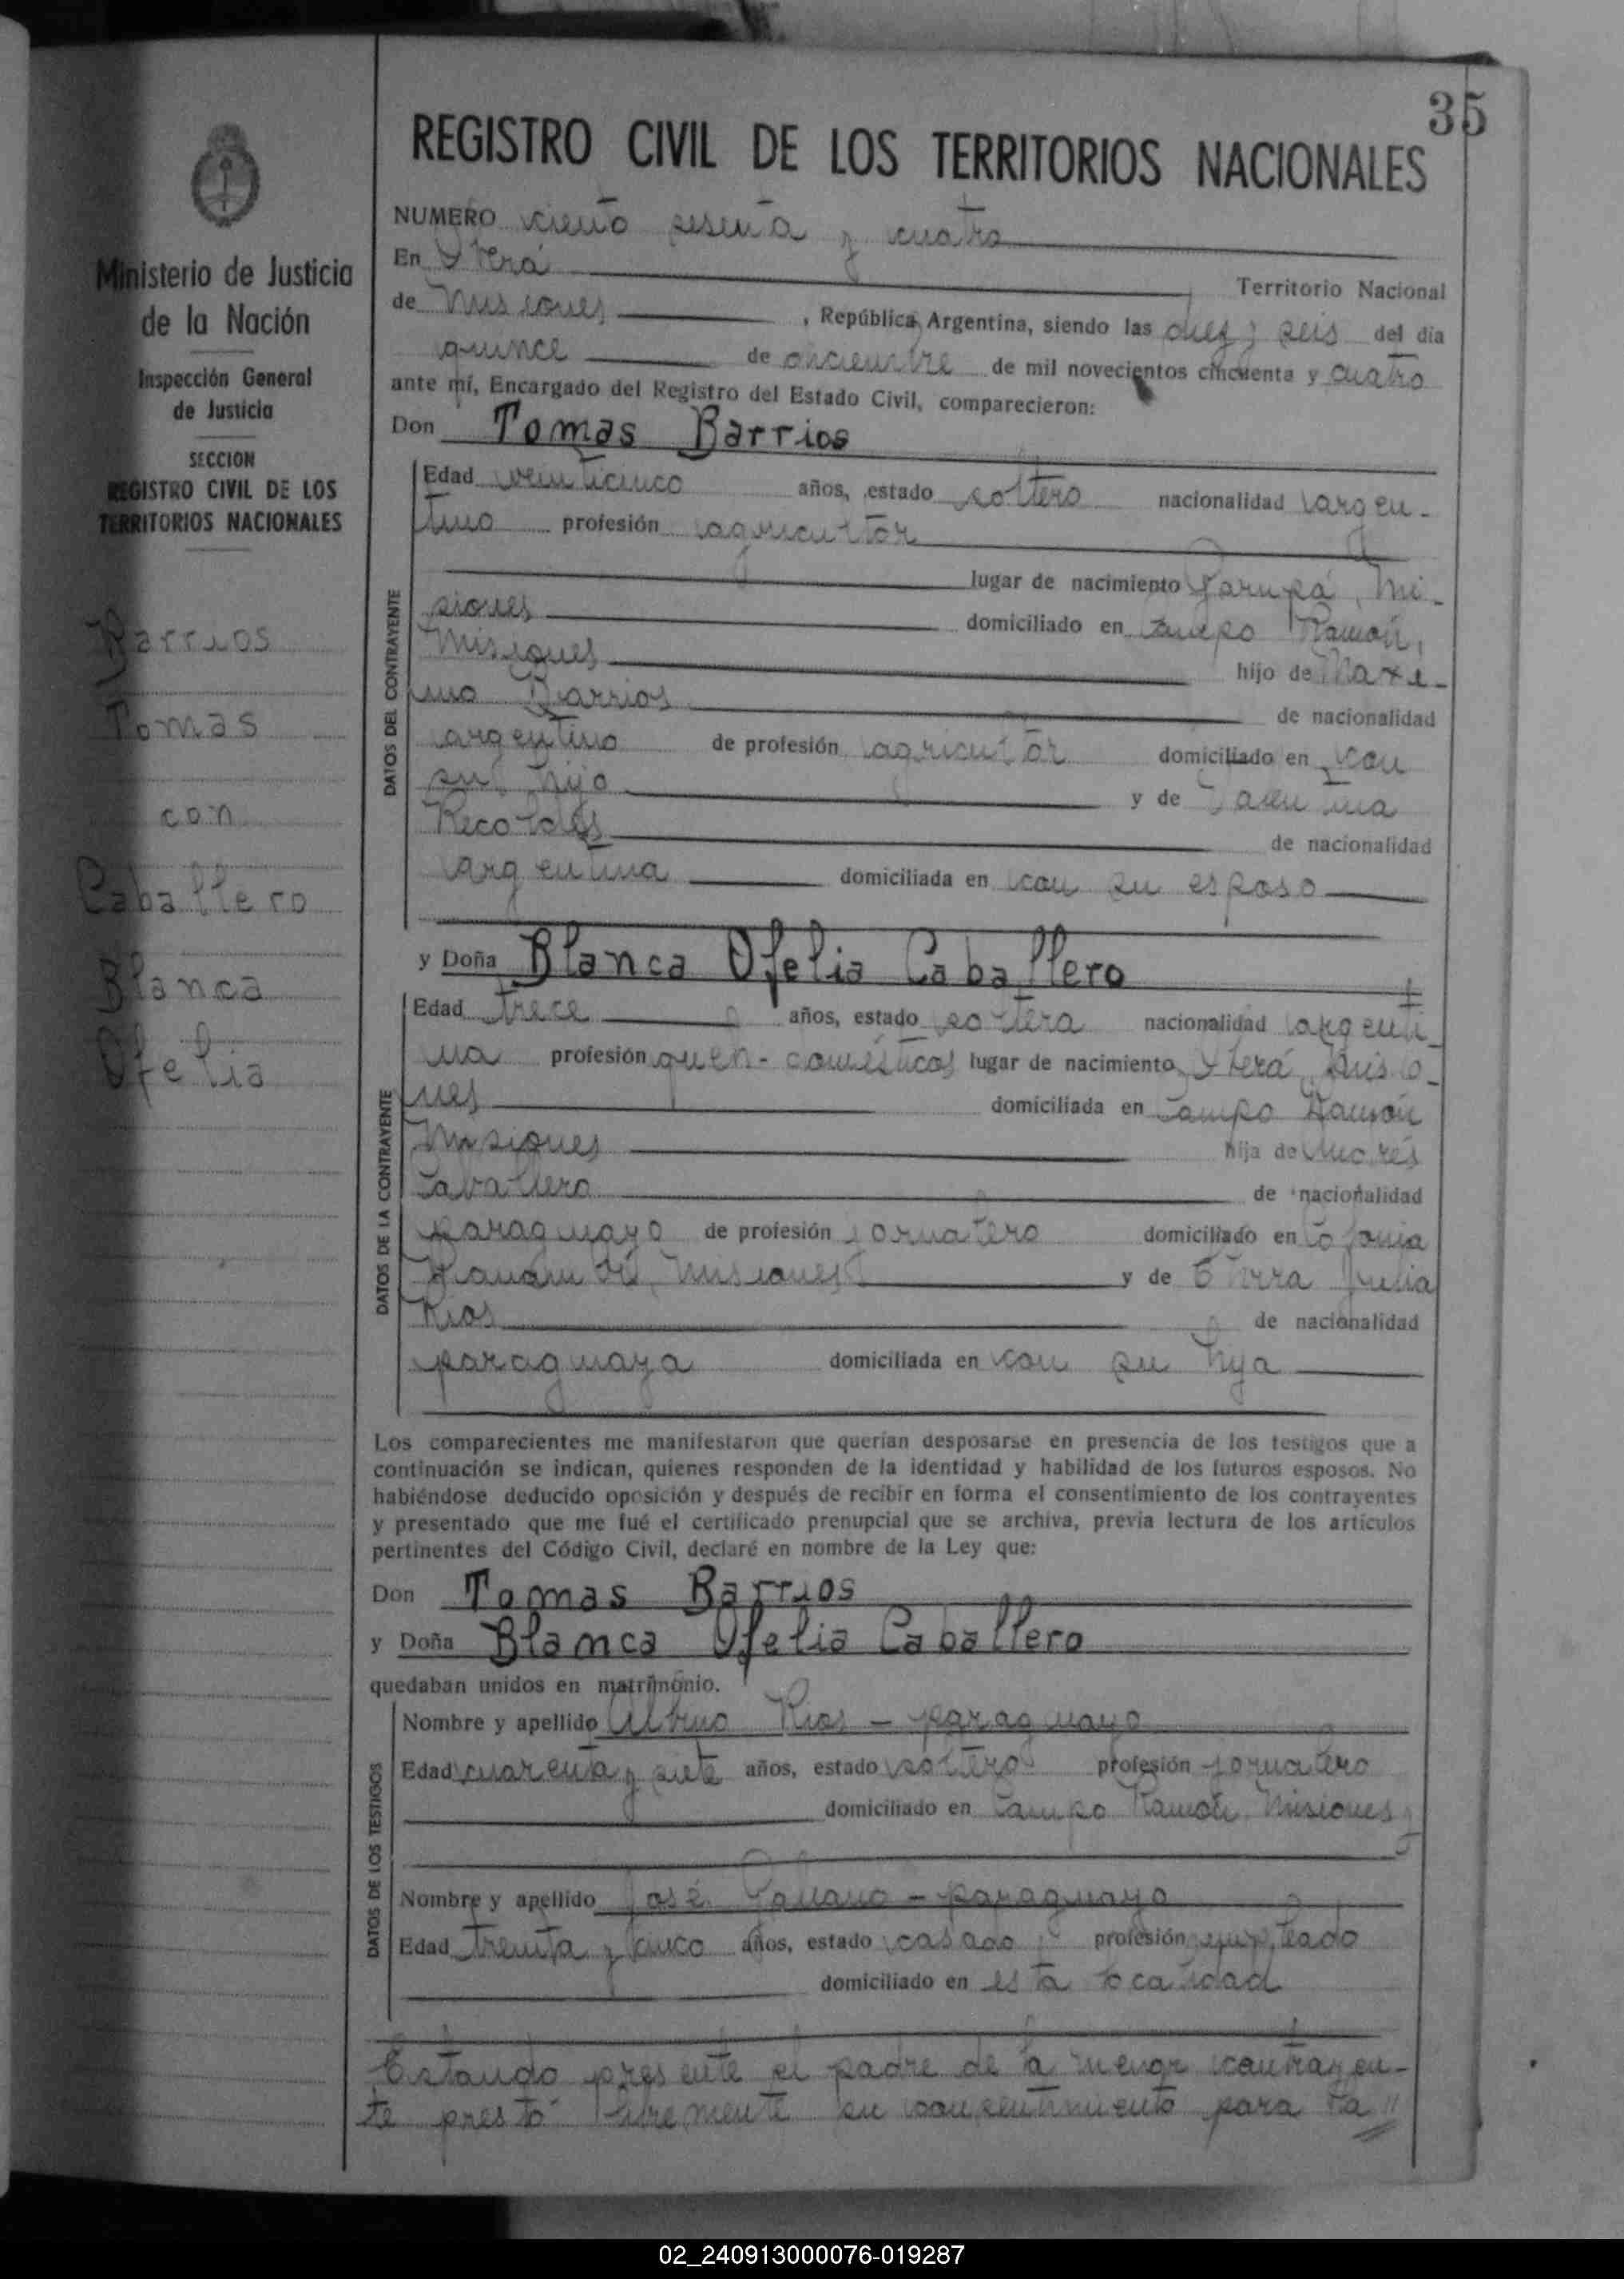 35
REGISTRO CIVIL DE LOS TERRITORIOS NACIONALES
Ministerio de Justicia
de la Nación
Inspección General
de Justicia
SECCION
REGISTRO CIVIL DE LOS
TERRITORIOS NACIONALES
Barrios
Tomas
con
Caballero
Blanca
Ofelia
NUMERO ciento sesenta y cuatro
En Yterá
Territorio Nacional
de Misiones , República Argentina, siendo las diez y seis del día
quince de diciembre de mil novecientos cincuenta y cuatro
ante mí, Encargado del Registro del Estado Civil, comparecieron:
Don Tomas Barrios
DATOS DEL CONTRAYENTE
Edad veinticinco años, estado soltero nacionalidad argen-
tino profesión agricultor
lugar de nacimiento Garupá, Mi-
siones domiciliado en Campo Ramón,
Misiones hijo de Maxi-
mo Barrios de nacionalidad
argentino de profesión agricultor domiciliado en con
su hijo y de
Recoldes de nacionalidad
argentina domiciliada en con su esposo
y Doña Blanca Ofelia Caballero
DATOS DE LA CONTRAYENTE
Edad trece años, estado soltera nacionalidad argenti-
na profesión queh- domésticos lugar de nacimiento Yterá, Misio-
nes domiciliada en Campo Ramón
Misiones hija de
Caballero de nacionalidad
paraguayo de profesión jornalero domiciliado en Colonia
Misiones y de Julia
Rios de nacionalidad
paraguaya domiciliada en con su hija
Los comparecientes me manifestaron que querían desposarse en presencia de los testigos que a
continuación se indican, quienes responden de la identidad y habilidad de los futuros esposos. No
habiéndose deducido oposición y después de recibir en forma el consentimiento de los contrayentes
y presentado que me fué el certificado prenupcial que se archiva, previa lectura de los artículos
pertinentes del Código Civil, declaré en nombre de la Ley que:
Don Tomas Barrios
y Doña Blanca Ofelia Caballero
quedaban unidos en matrimonio.
DATOS DE LOS TESTIGOS
Nombre y apellido Albino Rios - paraguayo
Edad cuarenta y siete años, estado soltero profesión jornalero
domiciliado en Campo Ramón Misiones
Nombre y apellido José - paraguayo
Edad treinta y cinco años, estado casado profesión empleado
domiciliado en esta localidad
Estando presente el padre de la menor contrayen-
te prestó libremente su consentimiento para la //
02_240913000076-019287